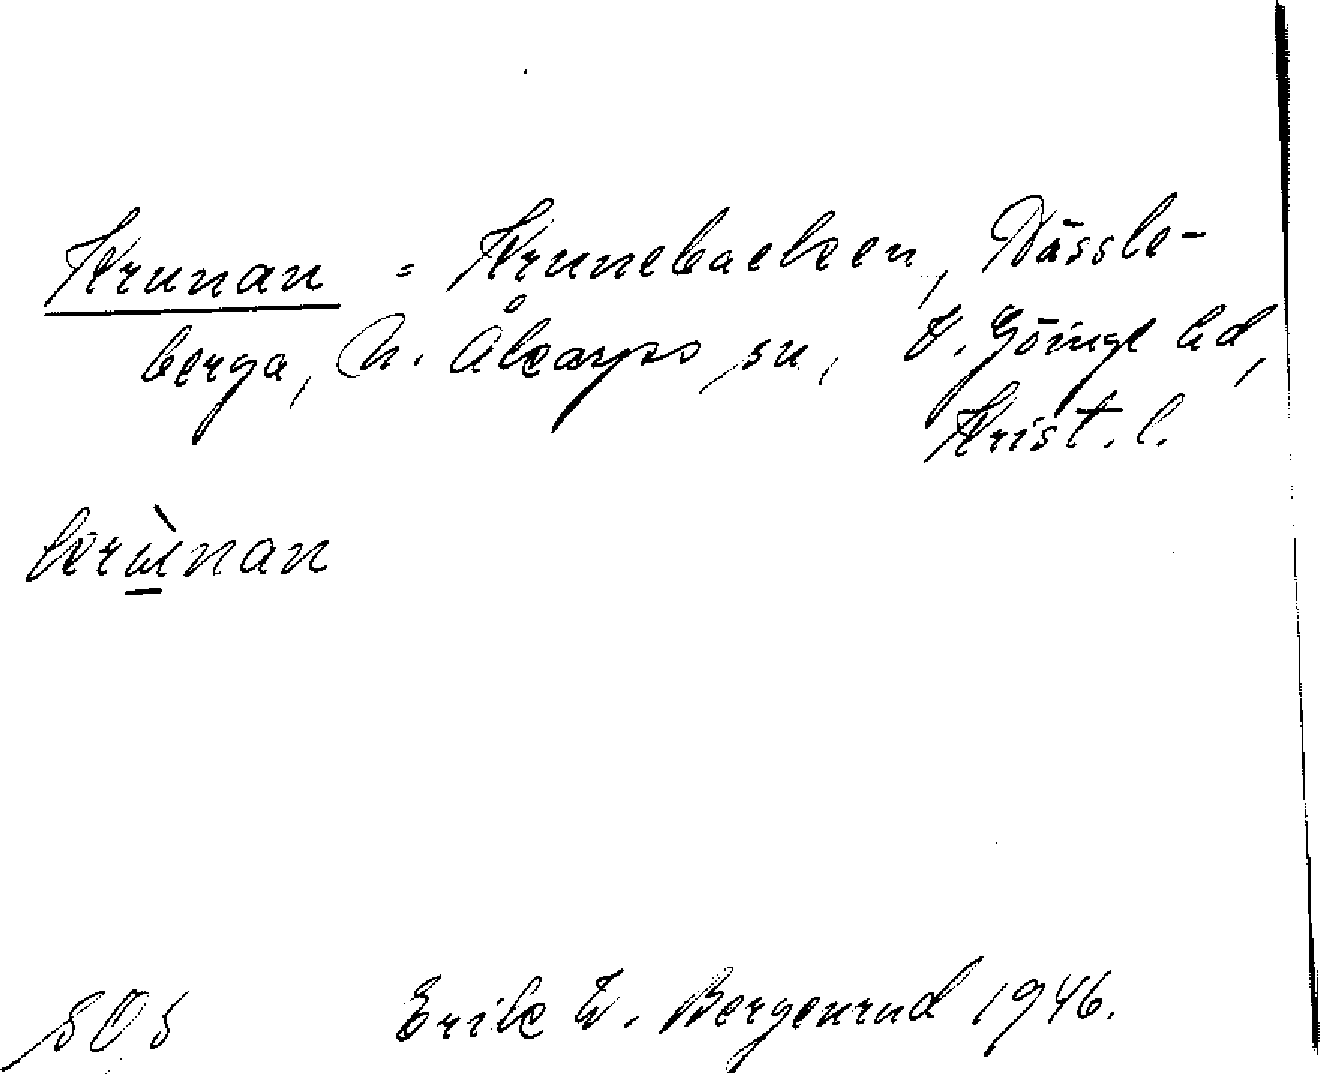 Krunan = Krunebacken, Nässle-
berga, N. Åkarps sn, V. Göinge hd,
Krist. l.
krùnan
SOS Erik W. Bergenrud 1946.